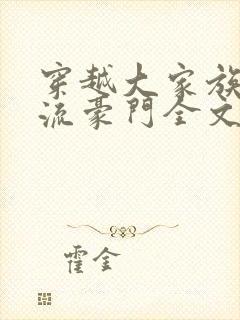 穿越大家族
流豪門全文
霍金